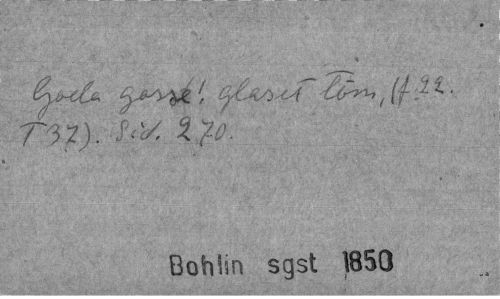 Goda gosse! glaset töm, (f 22.
T 37). Sid. 270.
Bohlin sgst 1850